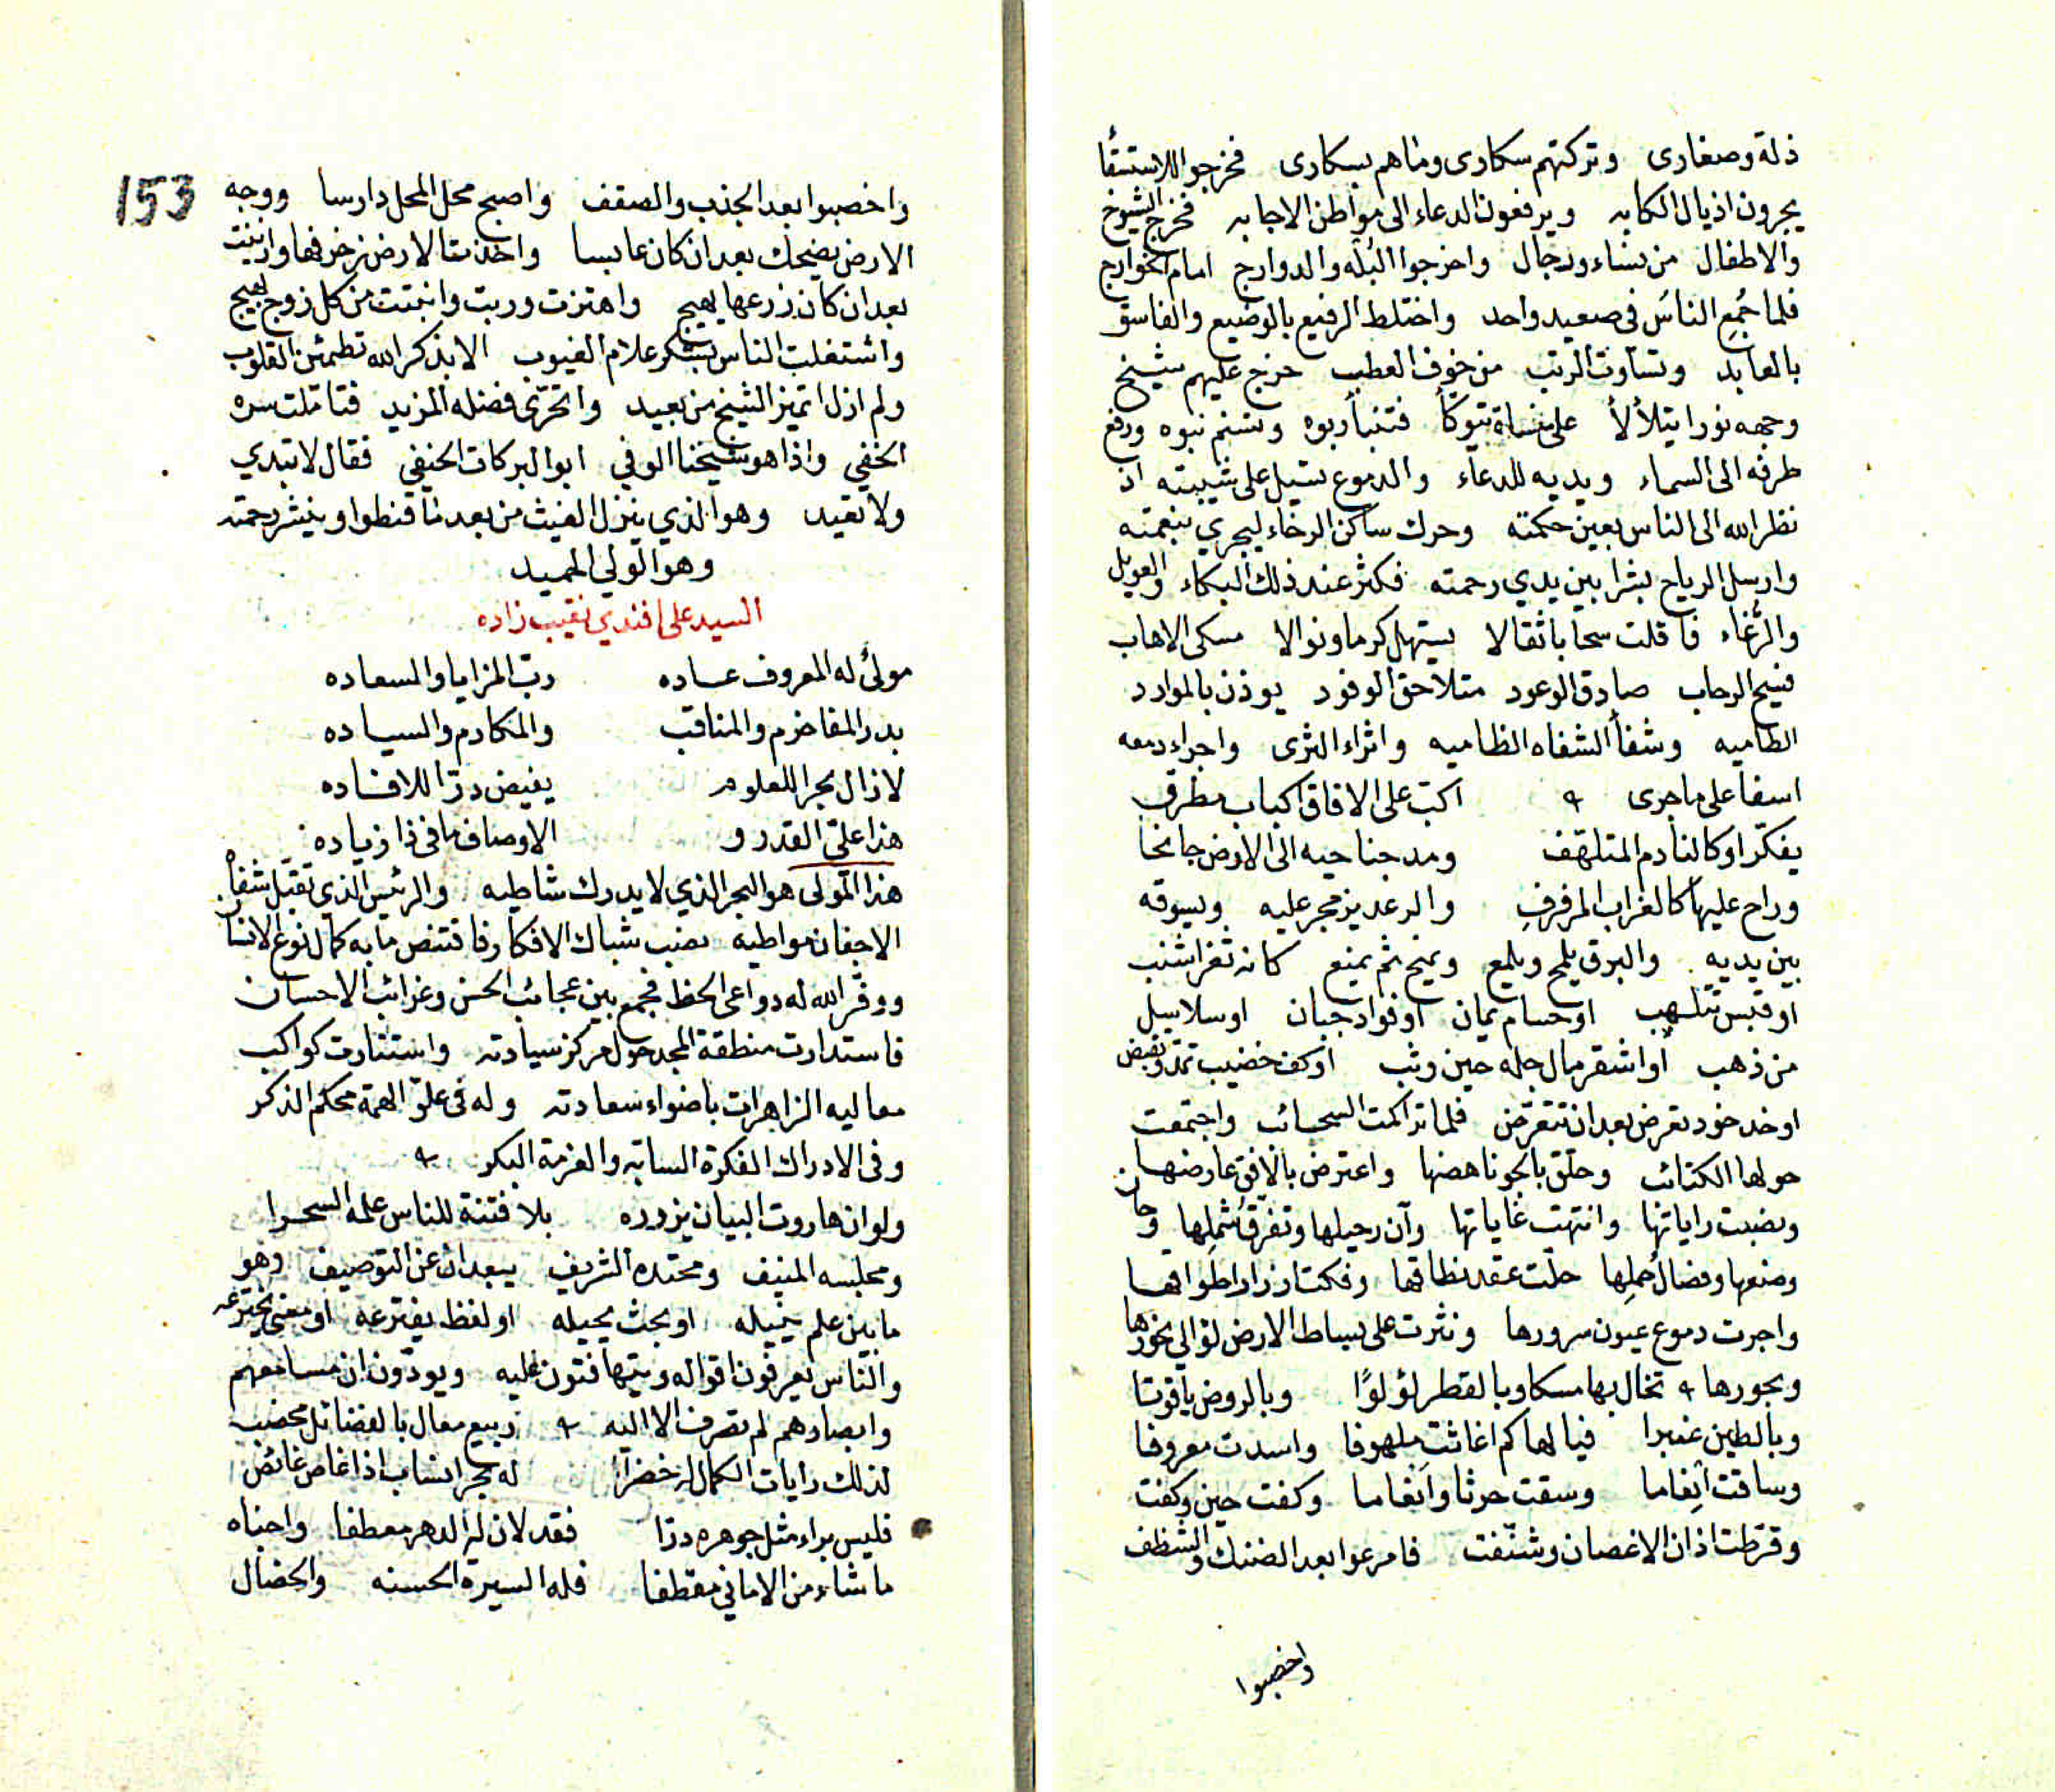 ذلة وصغارى وتركتهم سكارى وماهم بسكارى فخرجوا للاستسقا
يجرون اذيال الكابه ويرفعون الدعاء الى مواطن الاجابه فخرج الشيوخ
والاطفال من نساء ورجال واخرجوا البُله والدوارج امام الخوارج
فلما جُمع الناسُ فى صعيد واحد واختلط الرفيع بالوضيع والفاسق
بالعابد وتساوت الرتب من خوف العطب خرج عليهم شيخ
وجهه نورا يتلألأ على منساة يتوكأ فتنبأ ربوه وتسنم نبوه ورفع
طرفه الى السماء ويديه للدعاء والدموع تسيل على شيبته ان
نظر الله الى الناس بعين حكمته وحرك ساكن الرخاء ليجري بنعمته
وارسل الرياح بشرا بين يدي رحمته فكثر عند ذلك البكاء والعويل
والرُّغاء فاقلت سحابا ثقالا يستهل كرما ونوالا مسكى الاهاب
فسيح الرحاب صادق الوعود متلاحق الوفود يوذن بالموارد
الطاميه وشفأ الشفاه الظاميه واثراء الثرى واجراء دمعه
اسفا على ماجرى اكبّ على الافاق اكباب مطرق
يفكّر او كالنادم المتلهّف ومد جناحيه الى الارض جانحا
وراح عليها كالغراب المرفرفِ والرعد يزمجر عليه ويسوقه
بين يديه والبرق يلمح ويلمع ويمنح ثم يمنع كانه ثغر اشنب
او قبس تتلهب او حسام يمان او فواد جبان او سلاسل
من ذهب او اشقر مال جله حين وثب او كف خضيب تمتد وتقبض
او خد خود تعرض بعد ان تتعرّض فلما تراكمت السحائب واجتمعت
حولها الكتائب وحلّق بالجو ناهضها واعترض بالافق عارضها
ونصبت راياتها وانتهت غاياتها وآن رحيلها وتفرق شملها وحان
وضعها وفصال حملها حلّت عقد نطاقها وفكت ازرار اطواقها
واجرت دموع عيون سرورها ونثرت على بساط الارض لؤالي نحورها
وبحورها تخال بها مسكا وبالقطر لؤلؤًا وبالروض ياقوتا
وبالطين عنبرا فيالها كم اغاثت ملهوفا واسدت معروفا
وساقت انعاما وسقت حرثا وانعاما وكفت حين وكفت
وقرّطت اذان الاغصان وشنّفت فامرعوا بعد الضنك والشظف
واخصبوا
153
واخصبوا بعد الجذب والصقف واصبح محل المحل دارسا ووجه
الارض يضحك بعد ان كان عابسا واخذت الارض زخرفها وازينت
بعد ان كان زرعها يهيج واهتزت وربت وانبتت من كل زوج بهيج
واشتغلت الناس بشكر علام الغيوب الا بذكر الله تطمئن القلوب
ولم ازل اتميز الشيخ من بعيد واتحرّى فضله المزيد فتاملت سره
الخفي واذا هو شيخنا الوفي ابو البركات الحنفي فقال لا تبدي
ولا تعيد وهو الذي ينزل الغيث من بعد ما قنطوا وينشر رحمته
وهو الولي الحميد
السيد على افندي نقيب زاده
مولىً له المعروف عاده ربّ المزايا والسعاده
بدر المفاخر والمناقب والمكارم والسياده
لازال بحرا للعلوم يفيض درّا للافاده
هذا علىّ القدر و الاوصاف ما فى ذا زياده
هذا المولى هو البحر الذي لا يدرك شاطيه والرئيس الذي تقبّل شفاه
الاجفان مواطيه نصب شباك الافكار فاقتنص ما به كمال نوع الانسان
ووفّر الله له دواعى الحظ فجمع بين عجائب الحسن وغرائب الاحسان
فاستدارت منطقة المجد حول مركز سيادته واستنارت كواكب
معاليه الزاهرات باضواء سعادته وله فى علوّ الهمة محكم الذكر
وفى الادراك الفكرة السابة والعزمة البكر
ولو ان هاروت البيان يزوره بلا فتنة للناس علمه السحرا
ومجلسه المنيف ومحتده الشريف يبعدان عن التوصيف وهو
مابين علم ينميله او بحث يجيله او لفظ يفترعه او معنى يخترعه
والناس يعرفون اقواله ويتهافتون عليه ويودّون ان مسامعهم
وابصارهم لم تصرف الا اليه ربيع معال بالفضائل مخصب
لذلك رايات الكمال له خضرا له بحر انساب اذا غاص غائص
فليس براء مثل جوهره درّا فقد لان له الدهر معطفا واجناه
ماشاء من الاماني مقطفا فله السيرة الحسنه والخصال